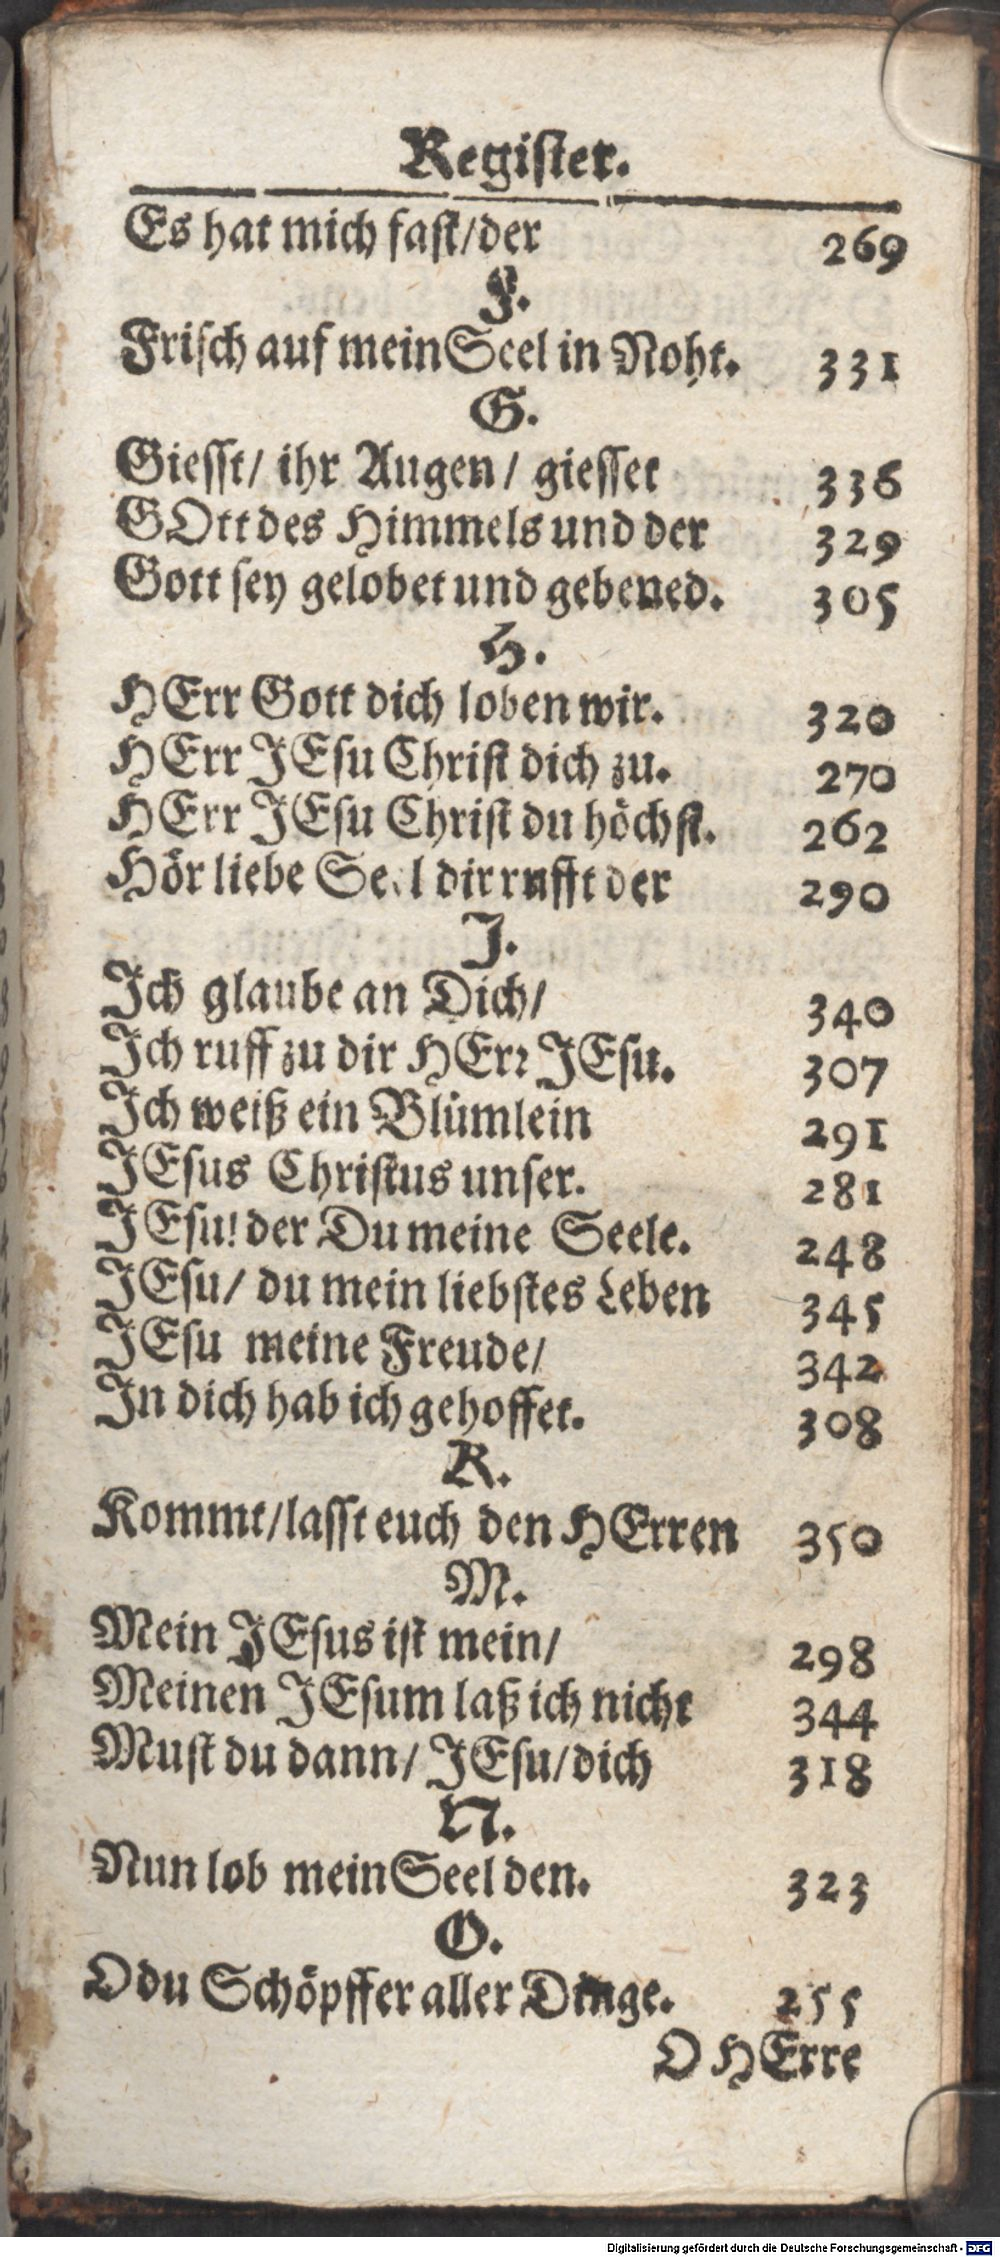 Register.
Es hat mich fast/der 269
F.
Frisch auf mein Seel in Noht. 331
G.
Giesst/ ihr Augen/ giesset 336
GOtt des Himmels und der 329
Gott sey gelobet und gebened. 305
H.
HErr Gott dich loben wir. 320
HErr JEsu Christ dich zu. 270
HErr JEsu Christ du höchst. 262
Hör liebe Seel dir rufft der 290
J.
Ich glaube an Dich/ 340
Ich ruff zu dir HErr JEsu. 307
Ich weiß ein Blümlein 291
JEsus Christus unser. 281
JEsu! der Du meine Seele. 248
JEsu/ du mein liebstes Leben 345
JEsu meine Freude/ 342
In dich hab ich gehoffet. 308
K.
Kommt/lasst euch den HErren 350
M.
Mein JEsus ist mein/ 298
Meinen JEsum laß ich nicht 344
Must du dann/ JEsu/dich 318
N.
Nun lob mein Seel den. 323
O.
O du Schöpffer aller Dinge. 255
O HErre
Digitalisierung gefördert durch die Deutsche Forschungsgemeinschaft - DFG